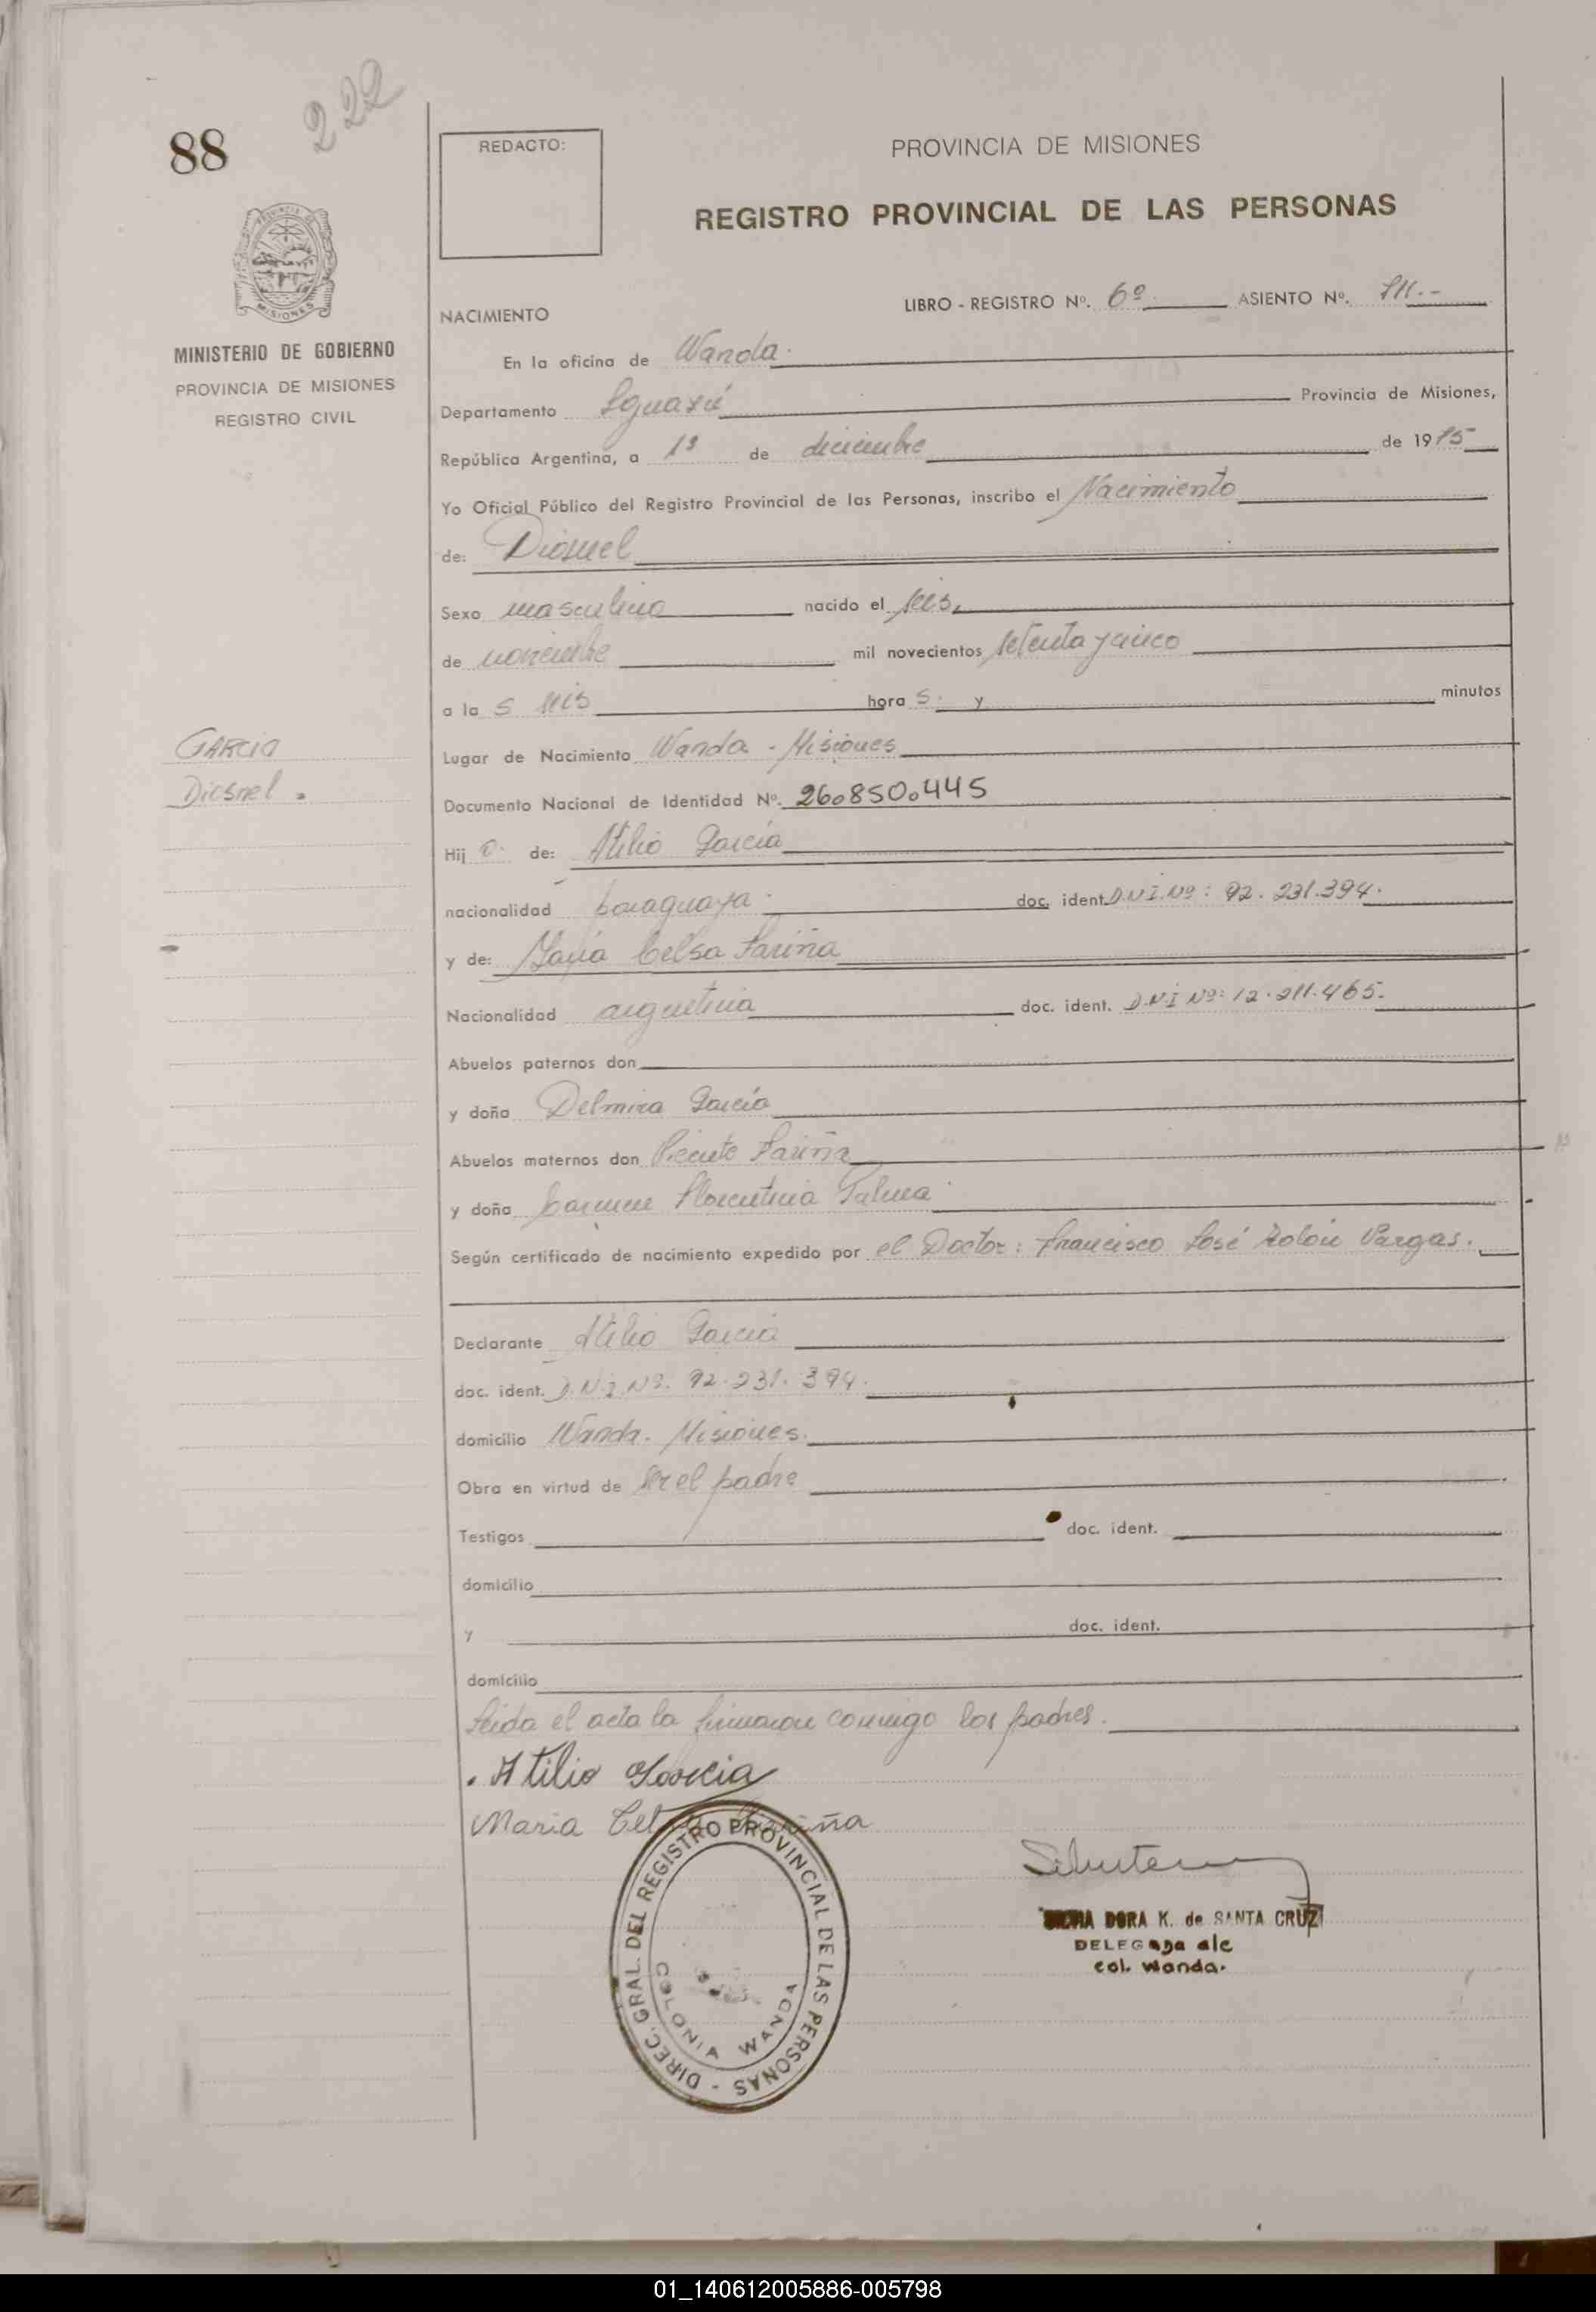 88
222
REDACTO:
PROVINCIA DE MISIONES
REGISTRO PROVINCIAL DE LAS PERSONAS
MINISTERIO DE GOBIERNO
PROVINCIA DE MISIONES
REGISTRO CIVIL
NACIMIENTO
LIBRO - REGISTRO Nº. 6º ASIENTO Nº.
En la oficina de Wanda.
Departamento Iguazú Provincia de Misiones,
República Argentina, a 1º de diciembre de 1975
Yo Oficial Público del Registro Provincial de las Personas, inscribo el Nacimiento
de: Diosnel
Sexo masculino nacido el seis,
de noviembre mil novecientos setenta y cinco
a la s seis hora s. y minutos
GARCIA
Diosnel.
Lugar de Nacimiento Wanda - Misiones
Documento Nacional de Identidad Nº. 26.850.445
Hij o. de: Atilio García
nacionalidad paraguaya. doc. ident. D.N.I.Nº: 92.231.394.
y de: María Celsa Fariña
Nacionalidad argentina doc. ident. D.N.I Nº: 12.211.465.
Abuelos paternos don
y doña Delmira García
Abuelos maternos don Vicente Fariña
y doña Carmen Florentina Palma.
Según certificado de nacimiento expedido por el Doctor: Francisco José Rolón Vargas.
Declarante Atilio García
doc. ident. D.N.I.Nº. 92.231.394.
domicilio Wanda. Misiones.
Obra en virtud de ser el padre
Testigos doc. ident.
domicilio
y doc. ident.
domicilio
Leida el acta la firmaron conmigo los padres.
. Atilio Garcia
Maria Celsa Fariña
DIREC. GRAL. DEL REGISTRO PROVINCIAL DE LAS PERSONAS -
COLONIA WANDA
DORA K. de SANTA CRUZ
DELEGADA alc
col. Wanda.
01_140612005886-005798